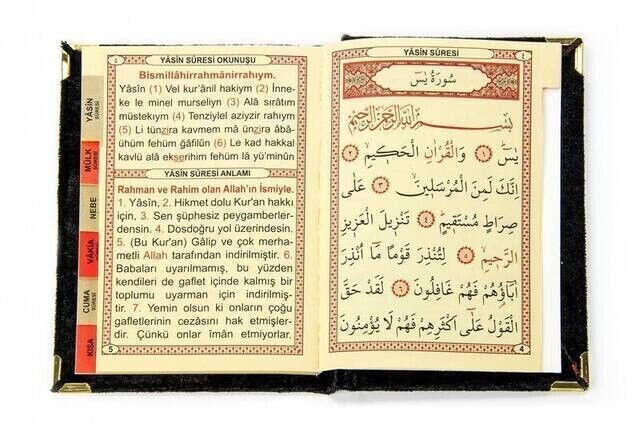 ٥ YÂSÎN SÛRESİ OKUNUŞU
Bismillâhirrahmânirrahıym.
Yâsîn (1) Vel kur'ânil hakiym (2) İnne-
ke le minel murseliyn (3) Alâ sırâtım
müstekıym (4) Tenziylel aziyzir rahıym
(5) Li tünzira kavmem mâ ünzira âbâ-
ühüm fehüm ğâfilûn (6) Le kad hakkal
kavlü alâ ekserihim fehüm lâ yü'minûn
YÂSÎN SÛRESİ ANLAMI
Rahman ve Rahim olan Allah'ın İsmiyle.
1. Yâsîn, 2. Hikmet dolu Kur'an hakkı
için, 3. Sen şüphesiz peygamberler-
densin. 4. Dosdoğru yol üzerindesin.
5. (Bu Kur'an) Gâlip ve çok merha-
metli Allah tarafından indirilmiştir. 6.
Babaları uyarılmamış, bu yüzden
kendileri de gaflet içinde kalmış bir
toplumu uyarman için indirilmiş-
tir. 7. Yemin olsun ki onların çoğu
gafletlerinin cezasını hak etmişler-
dir. Çünkü onlar îman etmiyorlar.
5
YÂSÎN SÛRESİ
MÜLK SÛRESİ
NEBE
VÂKIA SÛRESİ
CUMA SÛRESİ
KISA
YÂSÎN SÛRESİ ٤
سُورَةُ يٰسٓ
بِسْمِ اللّٰهِ الرَّحْمٰنِ الرَّحِيمِ
يٰسٓ ﴿١﴾ وَالْقُرْاٰنِ الْحَكٖيمِ ﴿٢﴾
اِنَّكَ لَمِنَ الْمُرْسَلٖينَ ﴿٣﴾ عَلٰى
صِرَاطٍ مُسْتَقٖيمٍ ﴿٤﴾ تَنْزٖيلَ الْعَزٖيزِ
الرَّحٖيمِ ﴿٥﴾ لِتُنْذِرَ قَوْمًا مَٓا اُنْذِرَ
اٰبَٓاؤُهُمْ فَهُمْ غَافِلُونَ ﴿٦﴾ لَقَدْ حَقَّ
الْقَوْلُ عَلٰٓى اَكْثَرِهِمْ فَهُمْ لَا يُؤْمِنُونَ
4